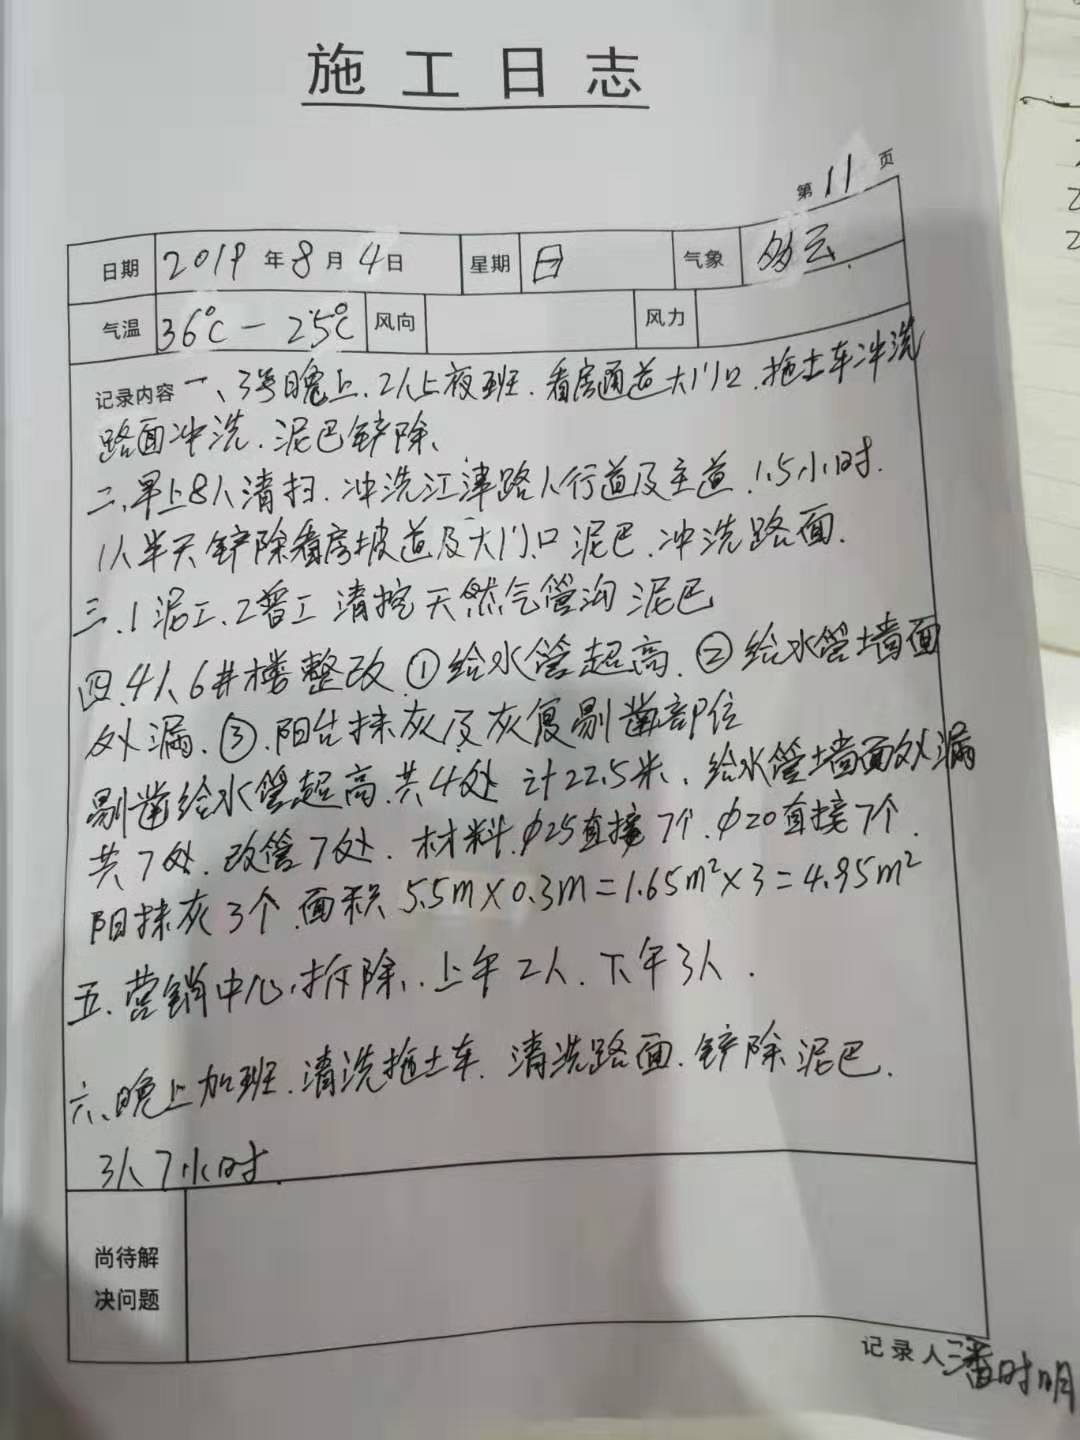 施工日志
第11页
日期 2019年8月4日 星期 日 气象 多云.
气温 36℃－25℃ 风向 风力
记录内容 一、3号晚上.2人上夜班.看房通道大门口.拖土车冲洗
路面冲洗.泥巴铲除、
二、早上8人清扫.冲洗江津路人行道及主道.1.5小时.
1人半天铲除看房坡道及大门口泥巴.冲洗路面.
三.1泥工、2普工清挖天然气管沟泥巴
四.4人6#楼整改①给水管超高.②给水管墙面
外漏.③.阳台抹灰及灰复剔凿部位
剔凿给水管超高.共4处 计22.5米.给水管墙面外漏
共7处.改管7处.材料.φ25直接7个.φ20直接7个.
阳抹灰3个.面积5.5m×0.3m=1.65m²×3=4.95m²
五.营销中心.拆除.上午2人.下午3人.
六、晚上加班.清洗拖土车.清洗路面.铲除泥巴.
3人7小时.
尚待解
决问题
记录人 潘时明